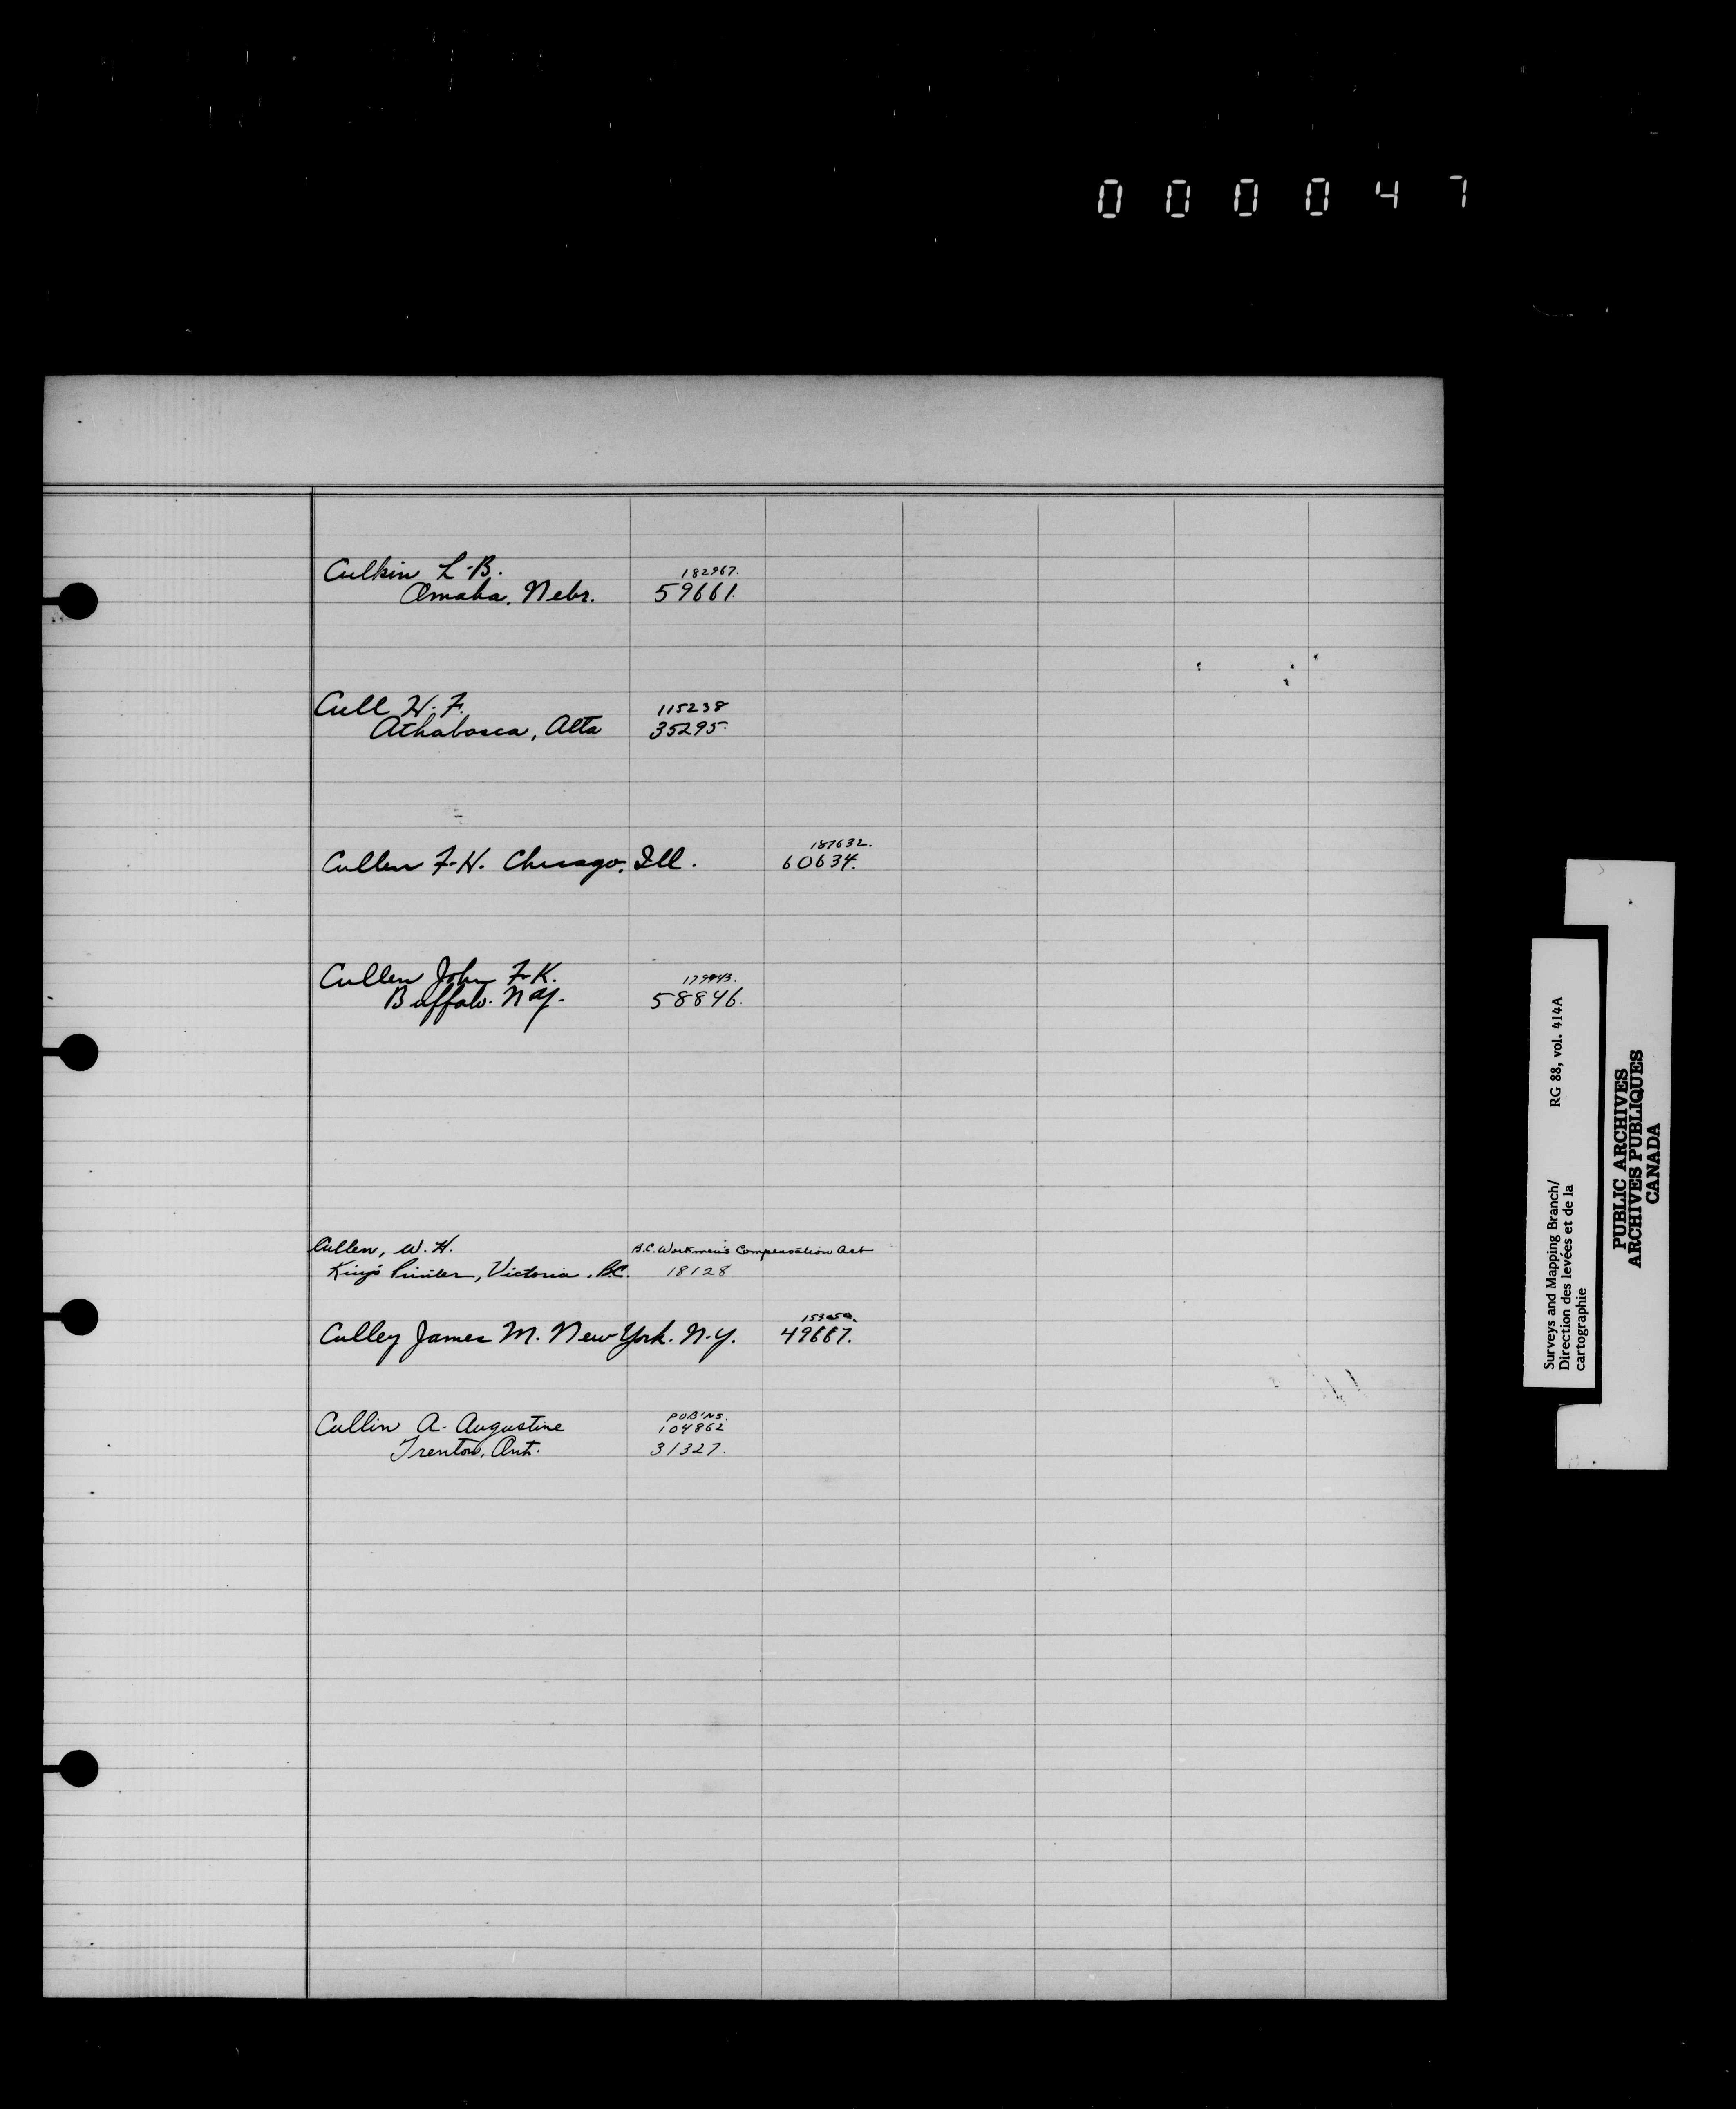 000047
Culkin L. B.
182967.
Omaha, Nebr. 59661.
Cull H. F. 115238
Athabasca, Alta 35295.
187632.
Cullen F. H. Chicago, Ill. 60634.
Cullen John F. K.
Buffalo. N.Y. 58846.
Cullen, W. H. B.C. Workmen's Compensation Act
King's Printer, Victoria, B.C. 18128
Culley James M. New York. N.Y. 49667.
PUB'NS.
Cullin A. Augustine 104862
Trenton, Ont. 31327.
Surveys and Mapping Branch/ RG 88, vol. 414A
Direction des levées et de la
cartographie
PUBLIC ARCHIVES
ARCHIVES PUBLIQUES
CANADA